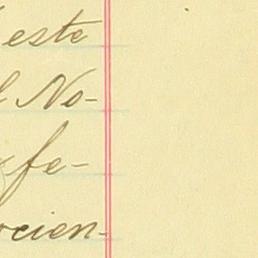 este
l No-
fe-
ocien-